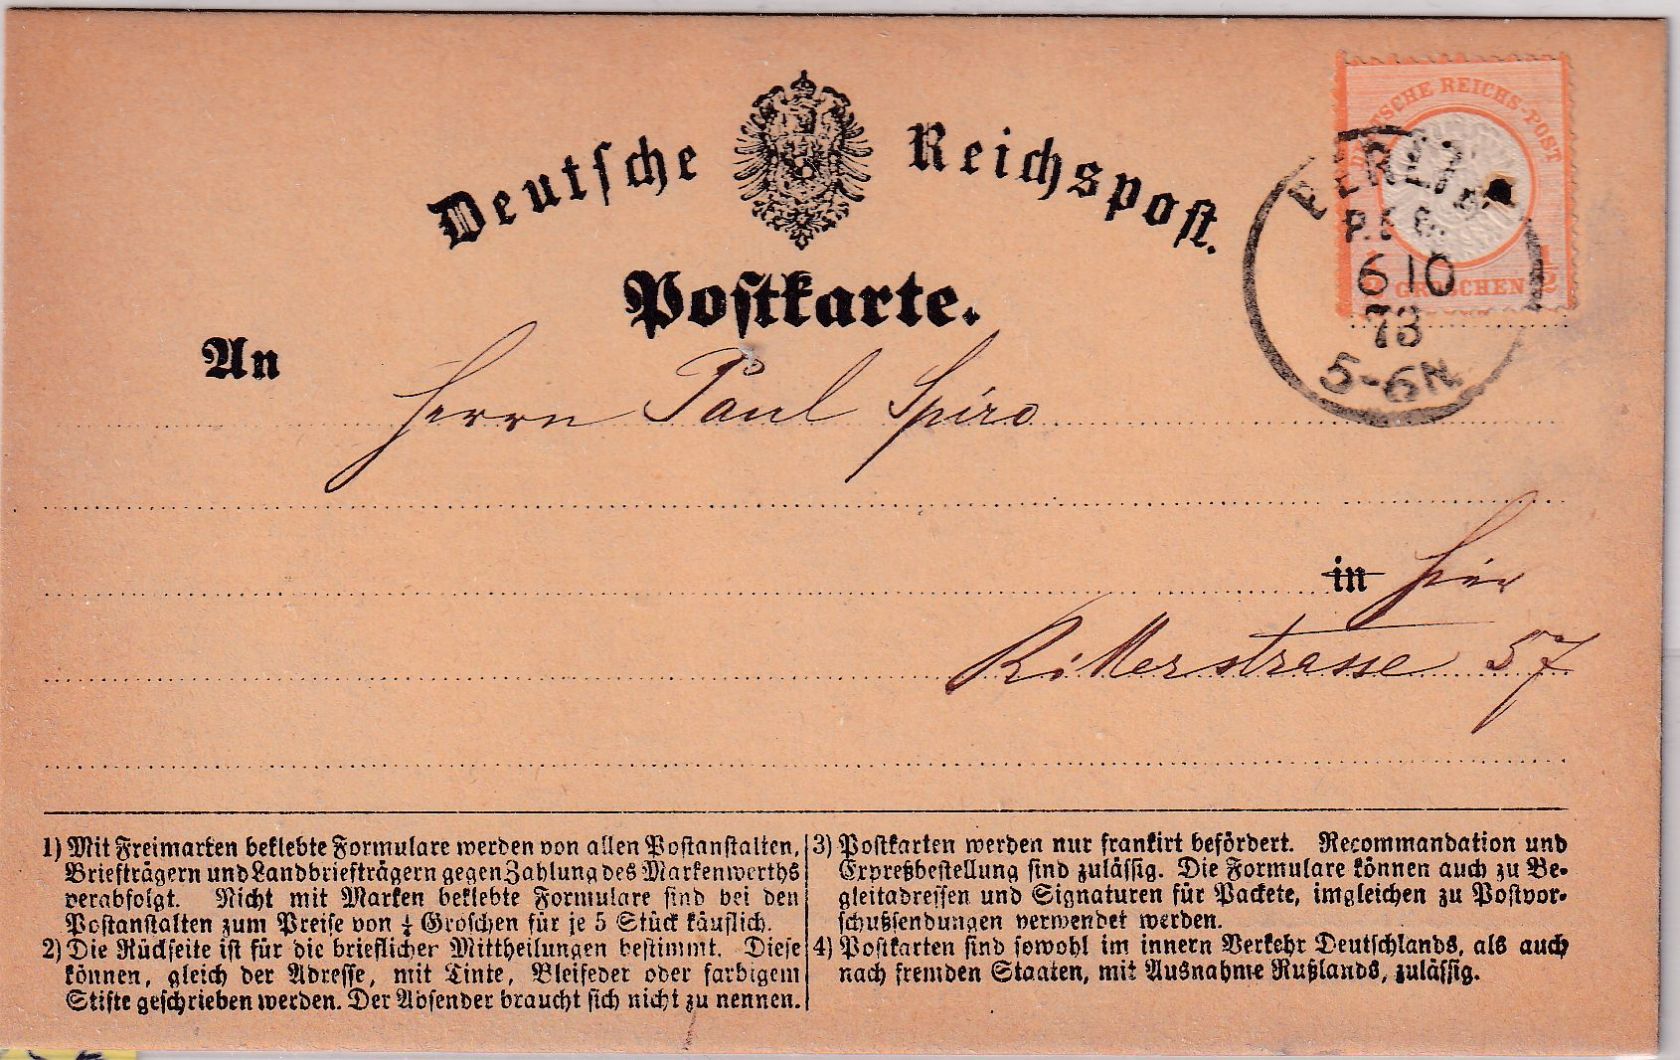 Deutsche Reichspost.
Postkarte.
DEUTSCHE REICHS-POST
GROSCHEN 1/2
BERLIN
6 10
73
5-6N
An
Herrn Paul Spiro
in hier
Ritterstrasse 57
1) Mit Freimarken beklebte Formulare werden von allen Postanstalten,
Briefträgern und Landbriefträgern gegen Zahlung des Markenwerths
verabfolgt. Nicht mit Marken beklebte Formulare sind bei den
Postanstalten zum Preise von ¼ Groschen für je 5 Stück käuflich.
2) Die Rückseite ist für die brieflicher Mittheilungen bestimmt. Diese
können, gleich der Adresse, mit Tinte, Bleifeder oder farbigem
Stifte geschrieben werden. Der Absender braucht sich nicht zu nennen.
3) Postkarten werden nur frankirt befördert. Recommandation und
Expreßbestellung sind zulässig. Die Formulare können auch zu Be-
gleitadressen und Signaturen für Packete, imgleichen zu Postvor-
schußsendungen verwendet werden.
4) Postkarten sind sowohl im innern Verkehr Deutschlands, als auch
nach fremden Staaten, mit Ausnahme Rußlands, zulässig.